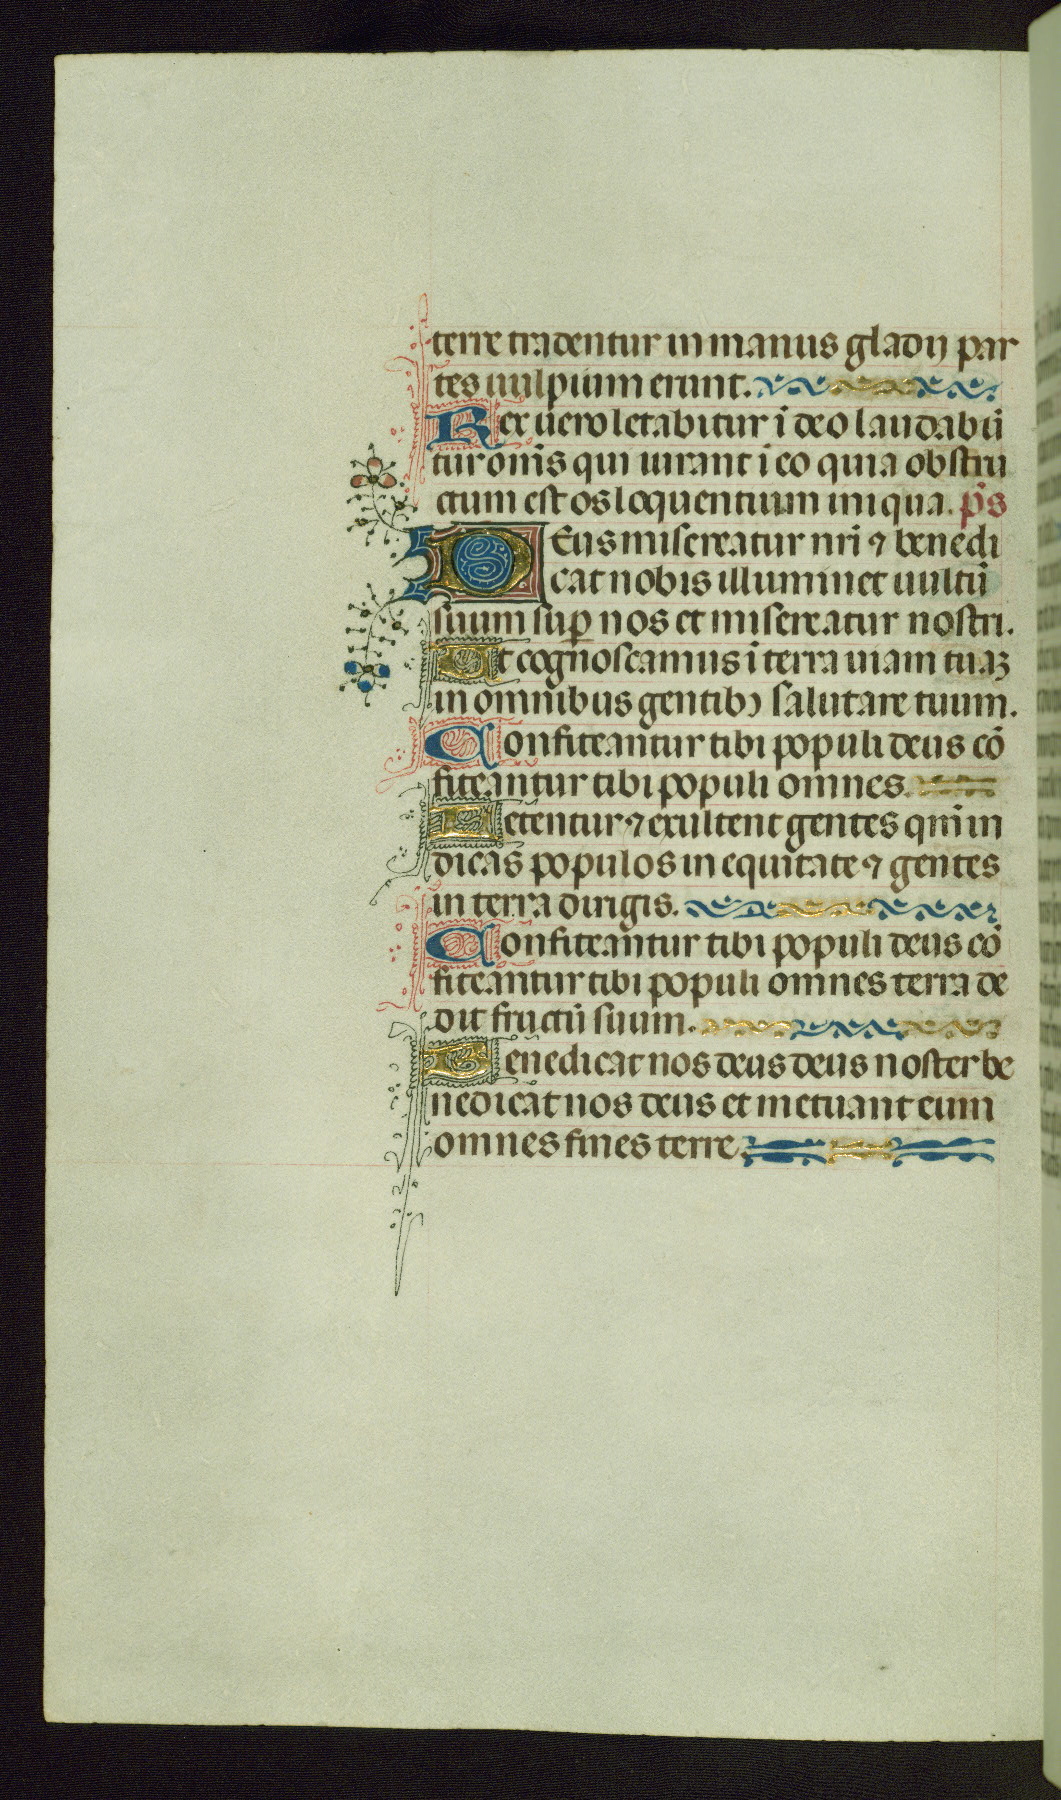 terre tradentur in manus gladij par
tes uulpium erunt.
Rex uero letabitur ī deo laudabū
tur om̄s qui iurant ī eo quia obstru
ctum est os loquentium iniqua. p̄s
DEus misereatur nr̄i ⁊ benedi
cat nobis illuminet uultū
suum sup̄ nos et misereatur nostri.
Ut cognoscamus ī terra uiam tuaꝫ
in omnibus gentibꝰ salutare tuum.
Confiteantur tibi populi deus cō
fiteantur tibi populi omnes.
Letentur ⁊ exultent gentes qm̄ iu
dicas populos in equitate ⁊ gentes
in terra dirigis.
Confiteantur tibi populi deus cō
fiteantur tibi populi omnes terra de
dit fructū suum.
Benedicat nos deus deus noster be
nedicat nos deus et metuant eum
omnes fines terre.